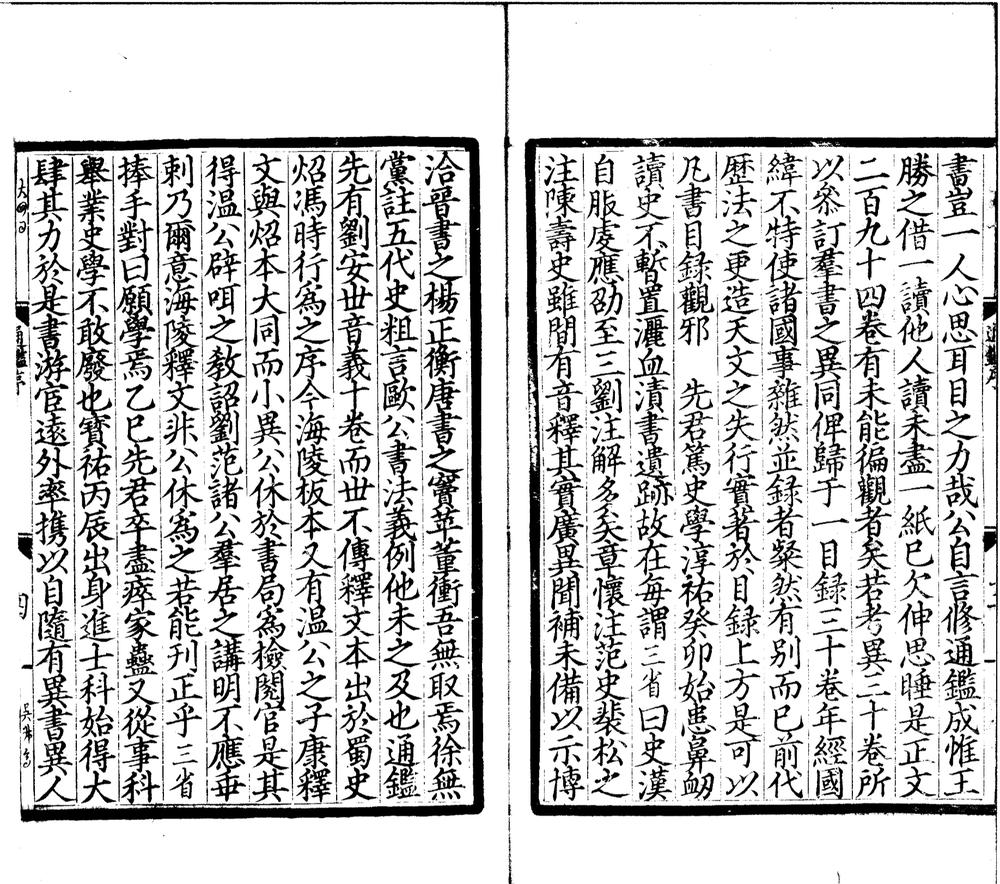 書豈一人心思耳目之力哉公自言修通鑑成惟王
勝之借一讀他人讀未盡一紙已欠伸思睡是正文
二百九十四卷有未能徧觀者矣若考異三十卷所
以叅訂羣書之異同俾歸于一目録三十卷年經國
緯不特使諸國事雜然並録者粲然有别而已前代
歴法之更造天文之失行實著於目録上方是可以
凡書目録觀邪 先君篤史學淳祐癸卯始患鼻衂
讀史不暫置灑血漬書遺跡故在毎謂三省曰史漢
自服虔應劭至三劉注解多矣章懷注范史裴松之
注陳壽史雖間有音釋其實廣異聞補未備以示博
洽晉書之楊正衡唐書之竇苹董衝吾無取焉徐無
黨註五代史粗言歐公書法義例他未之及也通鑑
先有劉安世音義十卷而世不傳釋文本出於蜀史
炤馮時行爲之序今海陵板本又有溫公之子康釋
文與炤本大同而小異公休於書局爲檢閱官是其
得溫公辟咡之敎詔劉范諸公羣居之講明不應乖
剌乃爾意海陵釋文非公休爲之若能刊正乎三省
捧手對曰願學焉乙巳先君卒盡瘁家蠱又從事科
舉業史學不敢廢也寶祐丙辰出身進士科始得大
肆其力於是書游宦遠外率携以自隨有異書異人
通鑑序
四